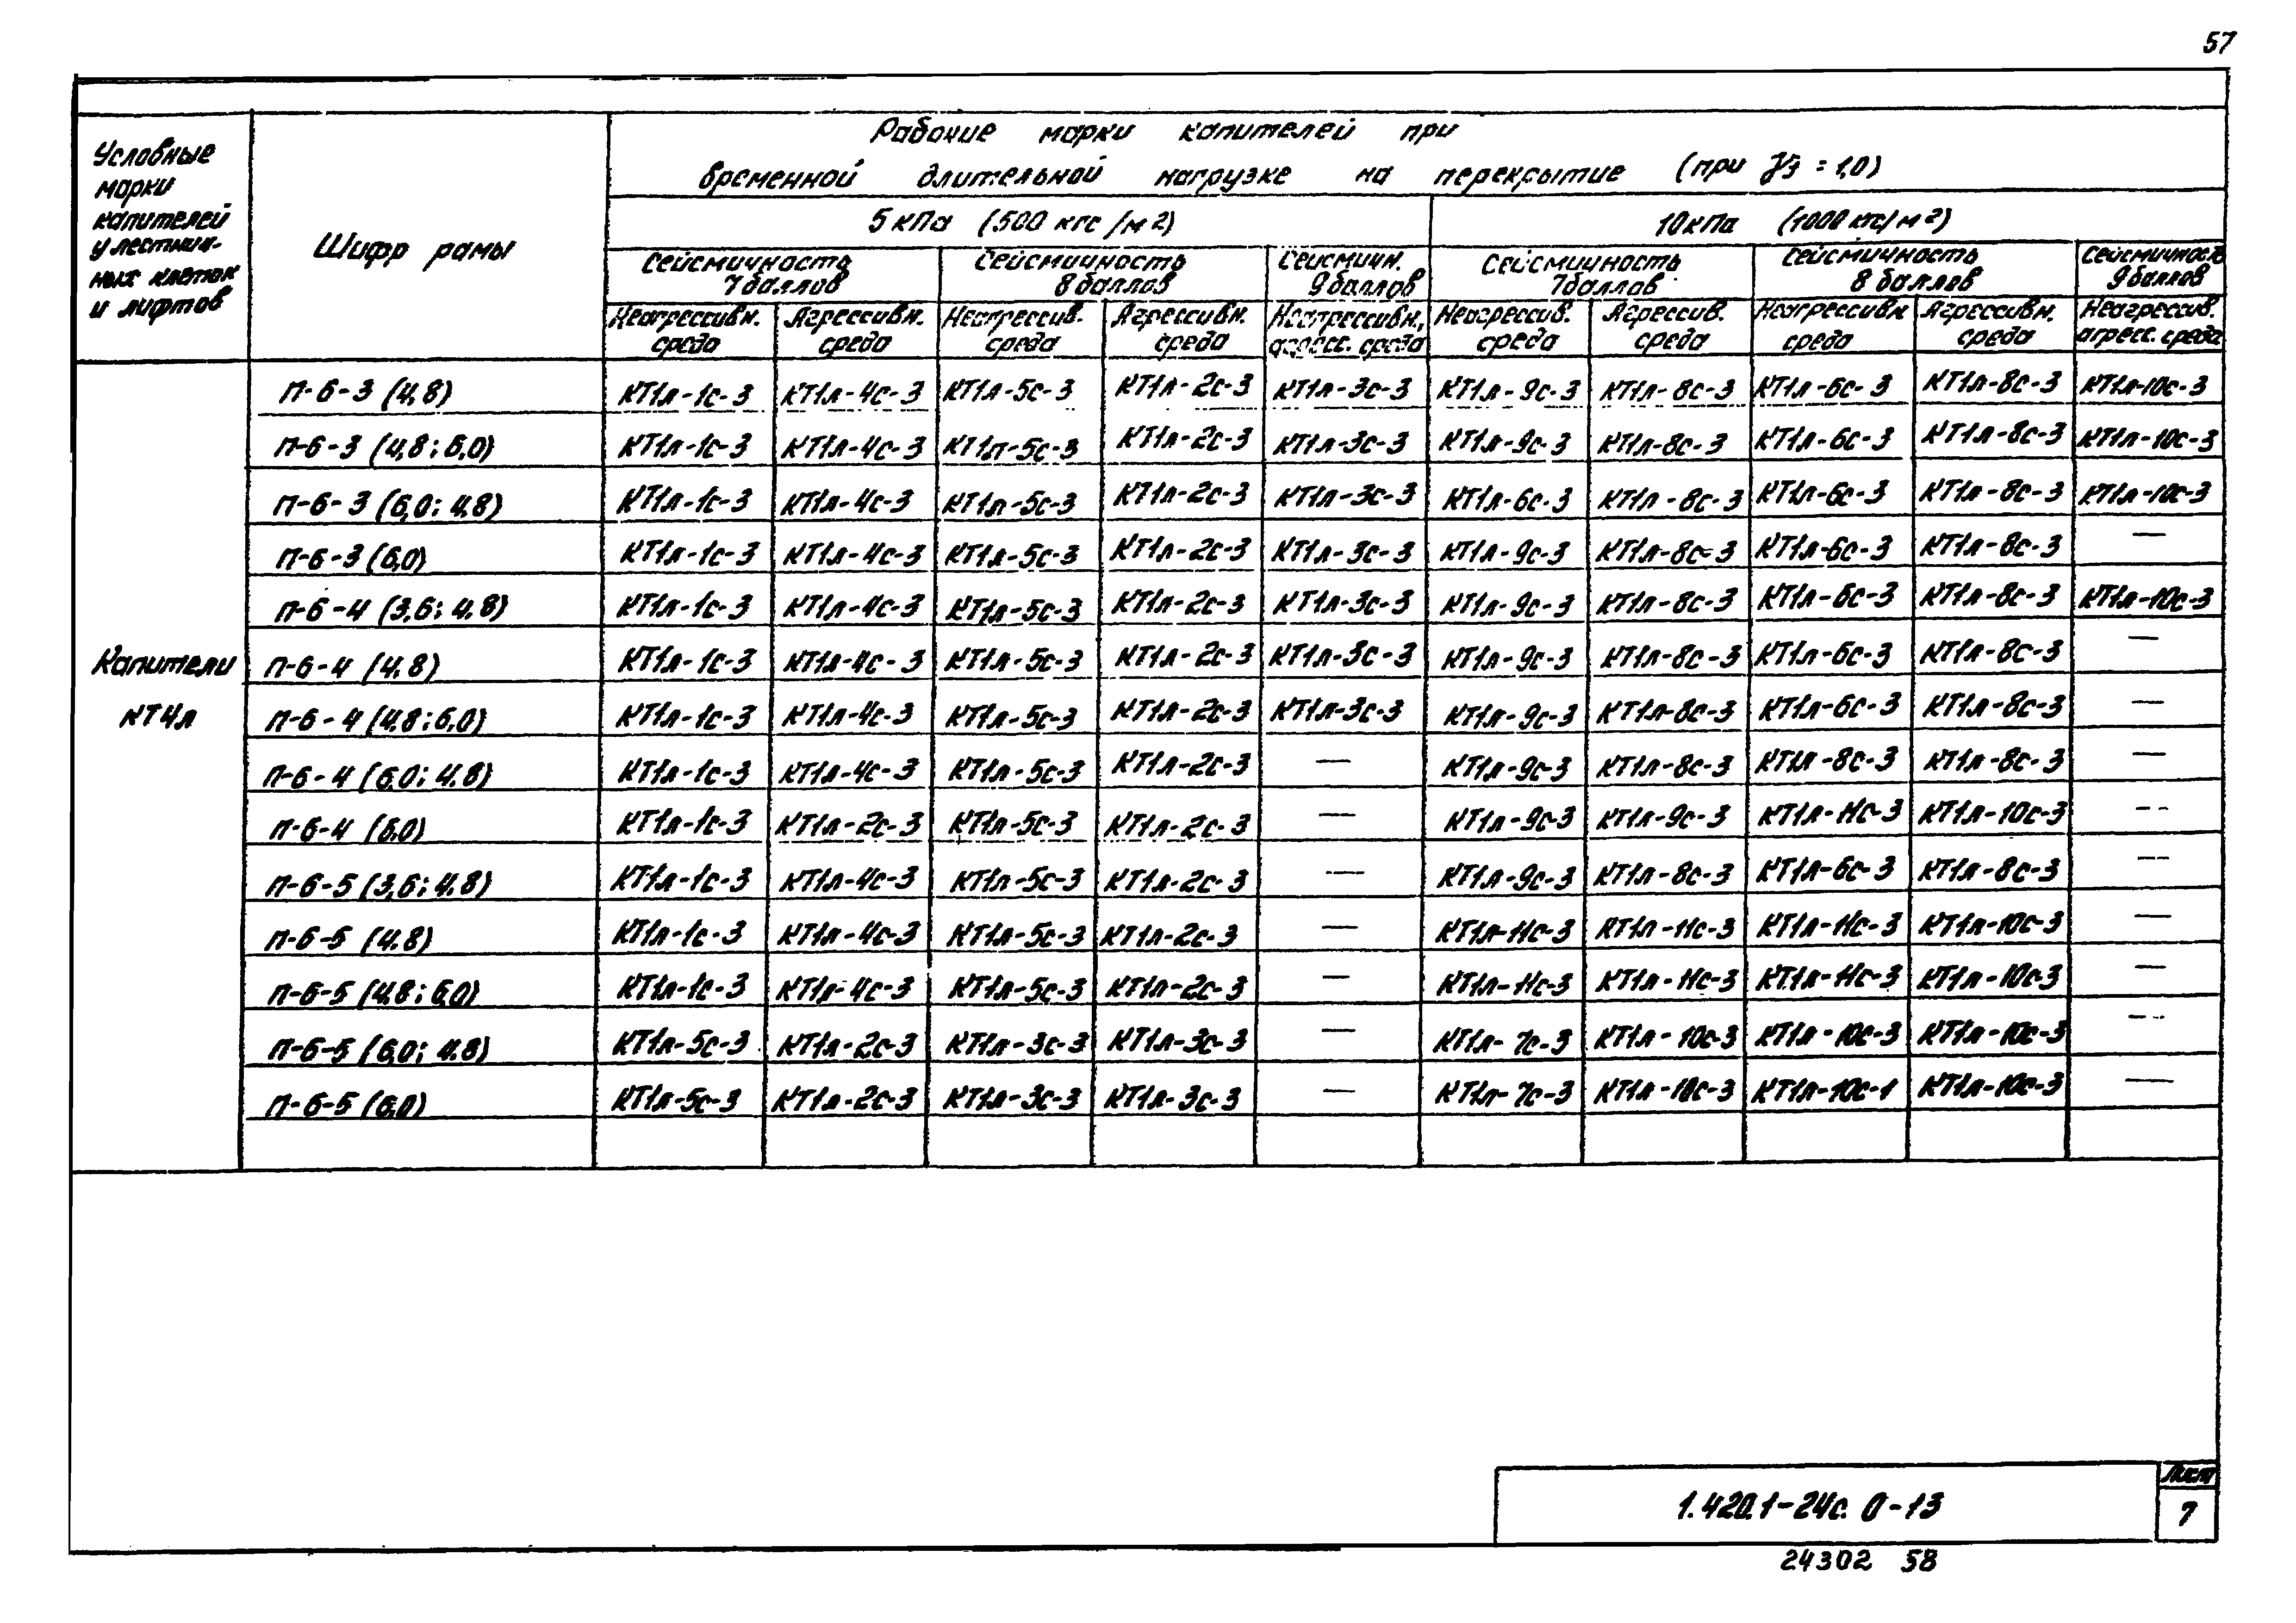 57
Рабочие марки капителей при
временной длительной нагрузке на перекрытие (при γз = 1,0)
Условные
марки
капителей
у лестнич-
ных клеток
и лифтов
Шифр рамы
5 кПа (500 кгс/м2) 10 кПа (1000 кгс/м2)
Сейсмичность 7 баллов Сейсмичность 8 баллов Сейсмичн. 9 баллов Сейсмичность 7 баллов Сейсмичность 8 баллов Сейсмичность 9 баллов
Неагрессивн. среда Агрессивн. среда Неагрессив. среда Агрессивн. среда Неагрессивн., агресс. среда Неагрессив. среда Агрессив. среда Неагрессивн среда Агрессивн. среда Неагрессив. агресс. среда
Капители
КТ4л
П-6-3 (4,8) КТ1л-1с-3 КТ1л-4с-3 КТ1л-5с-3 КТ1л-2с-3 КТ1л-3с-3 КТ1л-9с-3 КТ1л-8с-3 КТ1л-6с-3 КТ1л-8с-3 КТ1л-10с-3
П-6-3 (4,8; 6,0) КТ1л-1с-3 КТ1л-4с-3 КТ1л-5с-3 КТ1л-2с-3 КТ1л-3с-3 КТ1л-9с-3 КТ1л-8с-3 КТ1л-6с-3 КТ1л-8с-3 КТ1л-10с-3
П-6-3 (6,0; 4,8) КТ1л-1с-3 КТ1л-4с-3 КТ1л-5с-3 КТ1л-2с-3 КТ1л-3с-3 КТ1л-6с-3 КТ1л-8с-3 КТ1л-6с-3 КТ1л-8с-3 КТ1л-10с-3
П-6-3 (6,0) КТ1л-1с-3 КТ1л-4с-3 КТ1л-5с-3 КТ1л-2с-3 КТ1л-3с-3 КТ1л-9с-3 КТ1л-8с-3 КТ1л-6с-3 КТ1л-8с-3 —
П-6-4 (3,6; 4,8) КТ1л-1с-3 КТ1л-4с-3 КТ1л-5с-3 КТ1л-2с-3 КТ1л-3с-3 КТ1л-9с-3 КТ1л-8с-3 КТ1л-6с-3 КТ1л-8с-3 КТ1л-10с-3
П-6-4 (4,8) КТ1л-1с-3 КТ1л-4с-3 КТ1л-5с-3 КТ1л-2с-3 КТ1л-3с-3 КТ1л-9с-3 КТ1л-8с-3 КТ1л-6с-3 КТ1л-8с-3 —
П-6-4 (4,8; 6,0) КТ1л-1с-3 КТ1л-4с-3 КТ1л-5с-3 КТ1л-2с-3 КТ1л-3с-3 КТ1л-9с-3 КТ1л-8с-3 КТ1л-6с-3 КТ1л-8с-3 —
П-6-4 (6,0; 4,8) КТ1л-1с-3 КТ1л-4с-3 КТ1л-5с-3 КТ1л-2с-3 — КТ1л-9с-3 КТ1л-8с-3 КТ1л-8с-3 КТ1л-8с-3 —
П-6-4 (6,0) КТ1л-1с-3 КТ1л-2с-3 КТ1л-5с-3 КТ1л-2с-3 — КТ1л-9с-3 КТ1л-9с-3 КТ1л-11с-3 КТ1л-10с-3 —
П-6-5 (3,6; 4,8) КТ1л-1с-3 КТ1л-4с-3 КТ1л-5с-3 КТ1л-2с-3 — КТ1л-9с-3 КТ1л-8с-3 КТ1л-6с-3 КТ1л-8с-3 —
П-6-5 (4,8) КТ1л-1с-3 КТ1л-4с-3 КТ1л-5с-3 КТ1л-2с-3 — КТ1л-11с-3 КТ1л-11с-3 КТ1л-11с-3 КТ1л-10с-3 —
П-6-5 (4,8; 6,0) КТ1л-1с-3 КТ1л-4с-3 КТ1л-5с-3 КТ1л-2с-3 — КТ1л-11с-3 КТ1л-11с-3 КТ1л-11с-3 КТ1л-10с-3 —
П-6-5 (6,0; 4,8) КТ1л-5с-3 КТ1л-2с-3 КТ1л-3с-3 КТ1л-3с-3 — КТ1л-7с-3 КТ1л-10с-3 КТ1л-10с-3 КТ1л-10с-3 —
П-6-5 (6,0) КТ1л-5с-3 КТ1л-2с-3 КТ1л-3с-3 КТ1л-3с-3 — КТ1л-7с-3 КТ1л-10с-3 КТ1л-10с-1 КТ1л-10с-3 —
1.420.1-24с. 0-13
Лист
7
24302 58